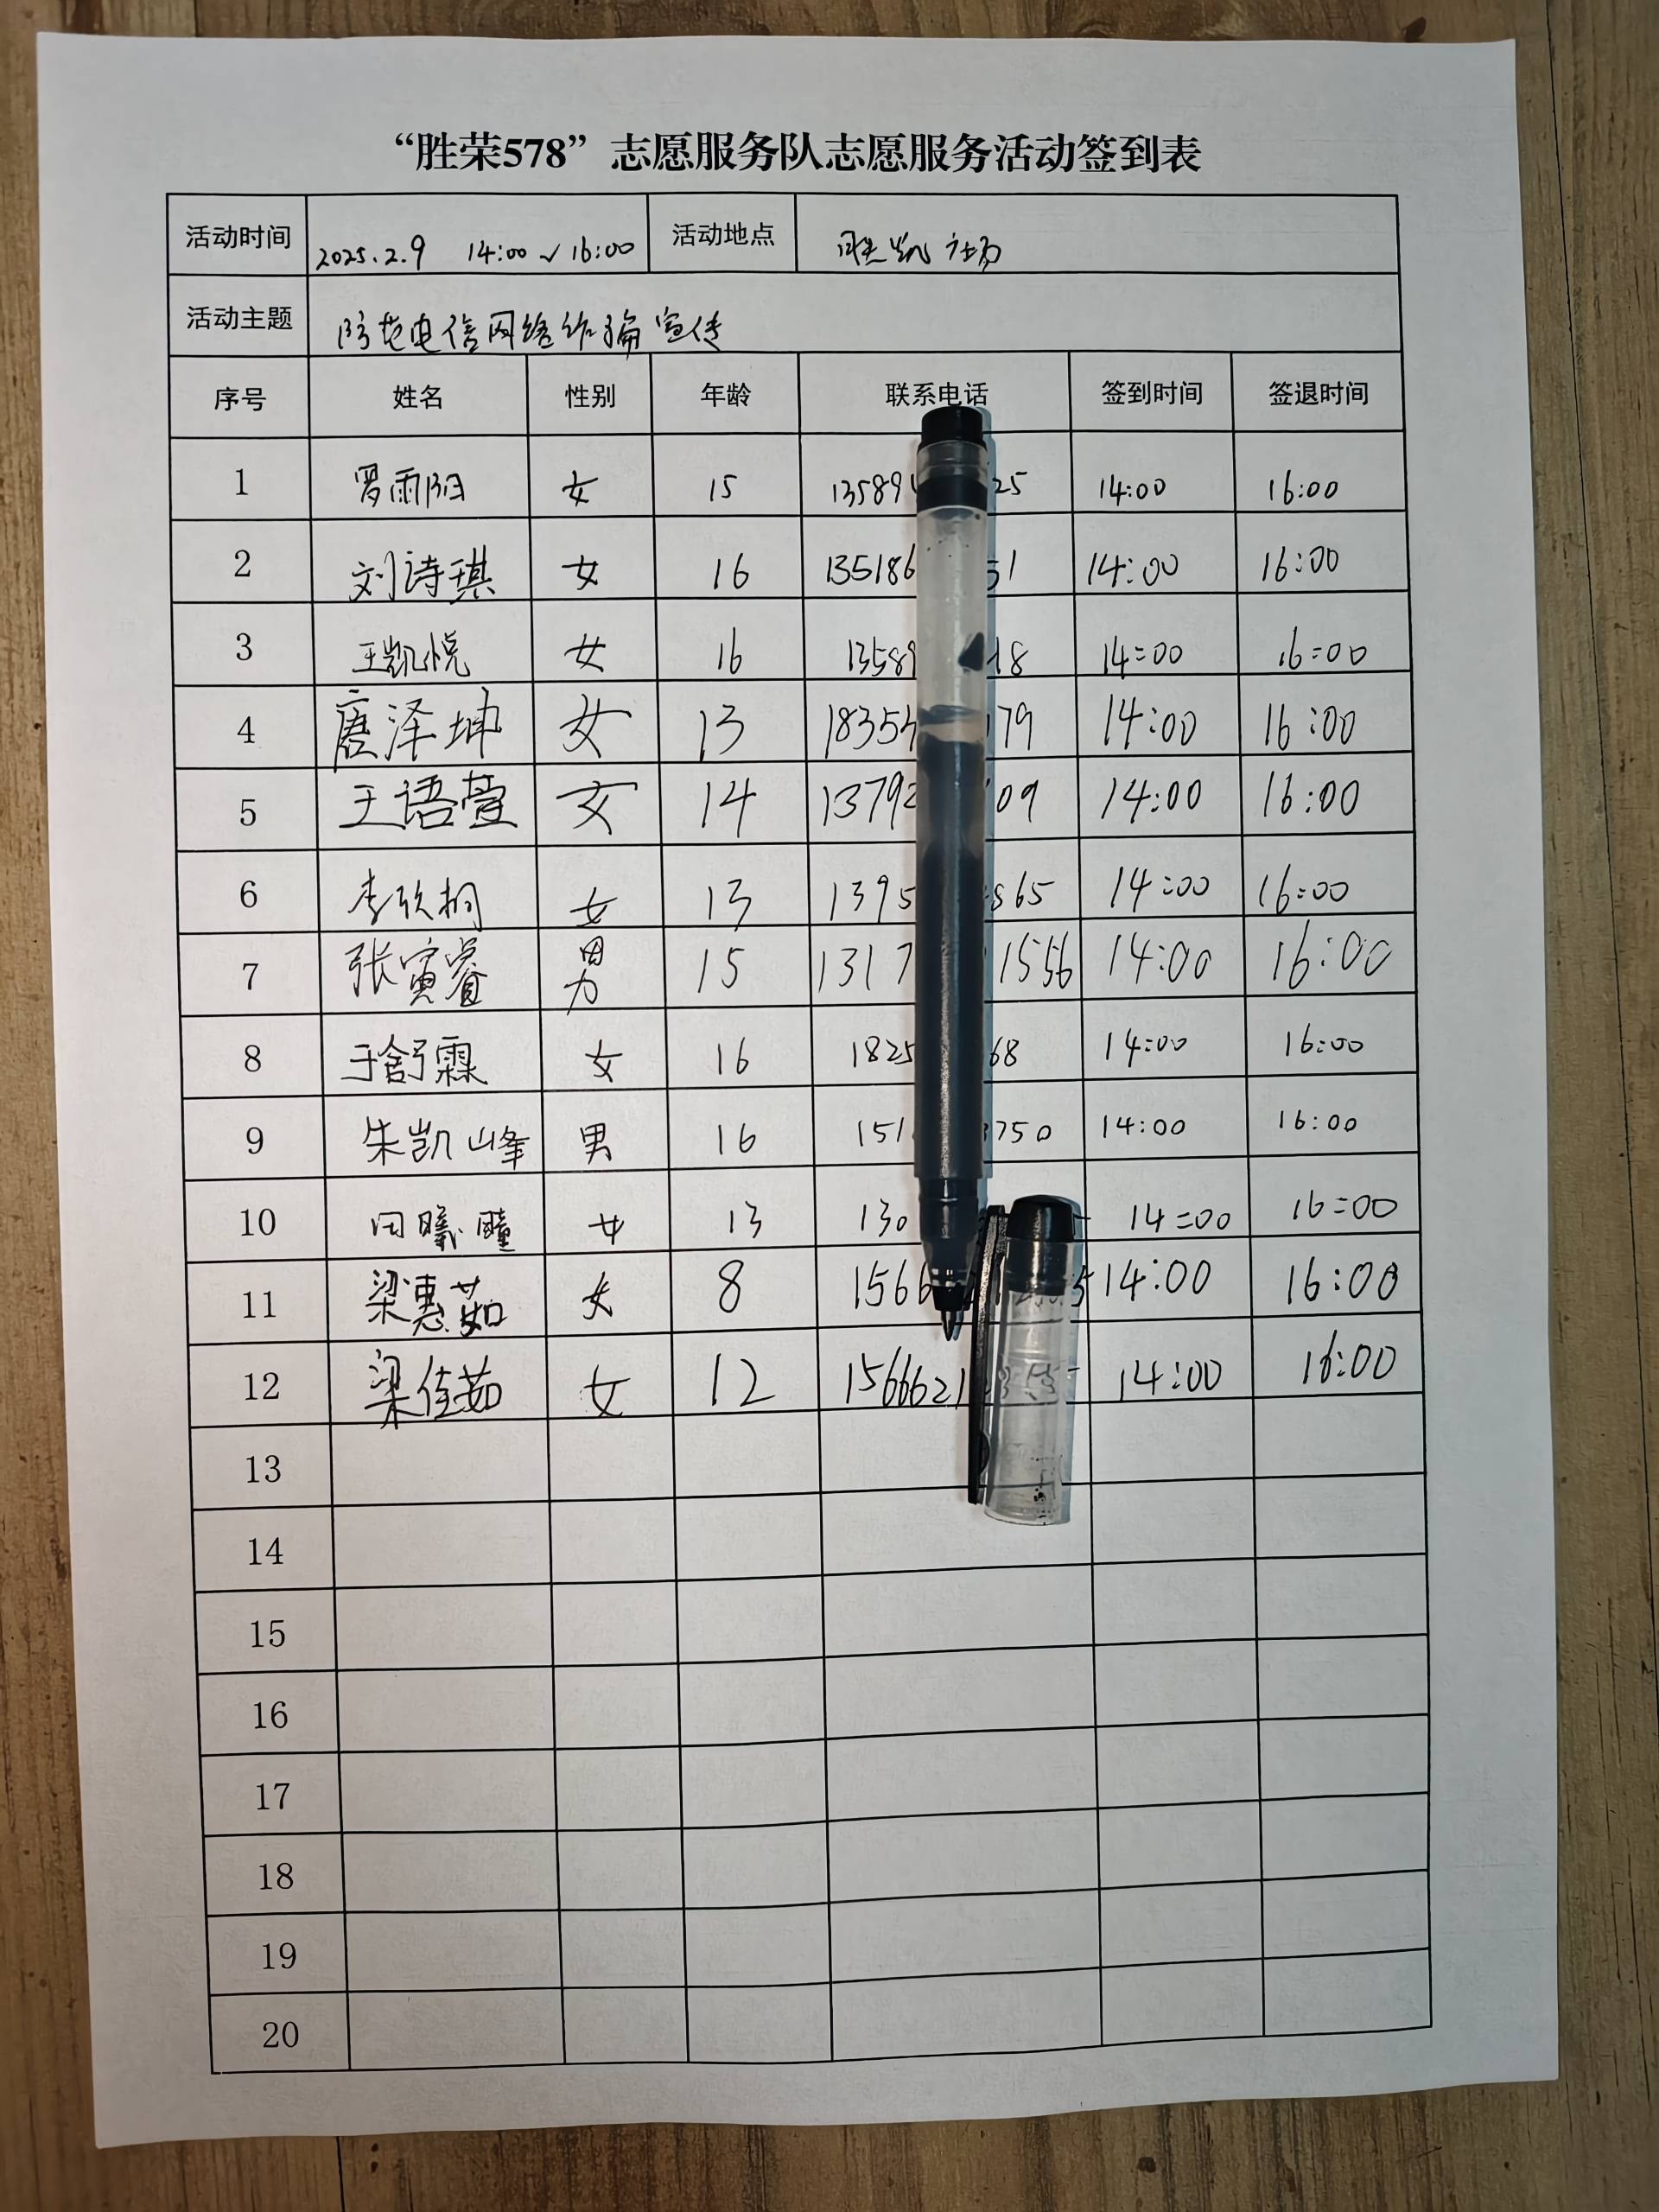 “胜荣578”志愿服务队志愿服务活动签到表
活动时间 2025.2.9 14:00~16:00 活动地点 胜凯广场
活动主题 防范电信网络诈骗宣传
序号 姓名 性别 年龄 联系电话 签到时间 签退时间
1 罗雨阳 女 15 13589 25 14:00 16:00
2 刘诗琪 女 16 135186 51 14:00 16:00
3 王凯悦 女 16 1358 18 14:00 16:00
4 唐泽坤 女 13 1835 179 14:00 16:00
5 王语萱 女 14 1379 09 14:00 16:00
6 李欣桐 女 13 1395 865 14:00 16:00
7 张寅睿 男 15 1317 1556 14:00 16:00
8 于舒霖 女 16 1825 68 14:00 16:00
9 朱凯峰 男 16 151 750 14:00 16:00
10 曦瞳 女 13 130 14:00 16:00
11 梁惠茹 女 8 1566 5 14:00 16:00
12 梁佳茹 女 12 1566621 14:00 16:00
13
14
15
16
17
18
19
20